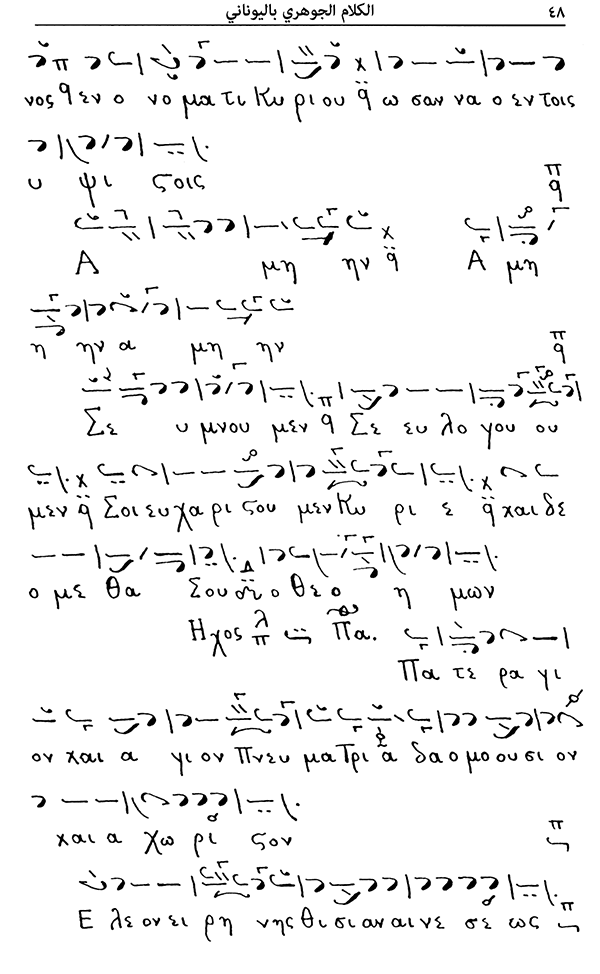 ٤٨ الكلام الجوهري باليوناني
νος εν ο νο μα τι Κυ ρι ου ω σαν να ο εν τοις
υ ψι ϛοις
Α μη ην Α μη
η ην α μη ην
Σε υ μνου μεν Σε ευ λο γου ου
μεν Σοι ευ χα ρι ϛου μεν Κυ ρι ε και δε
ο με θα Σου ο Θε ο η μων
Ηχος λ π Πα.
Πα τε ρα γι
ον και α γι ον Πνευ μα Τρι α δα ο μο ου σι ον
και α χω ρι ϛον
Ε λε ον ει ρη νης θι σι αν αι νε σε ως